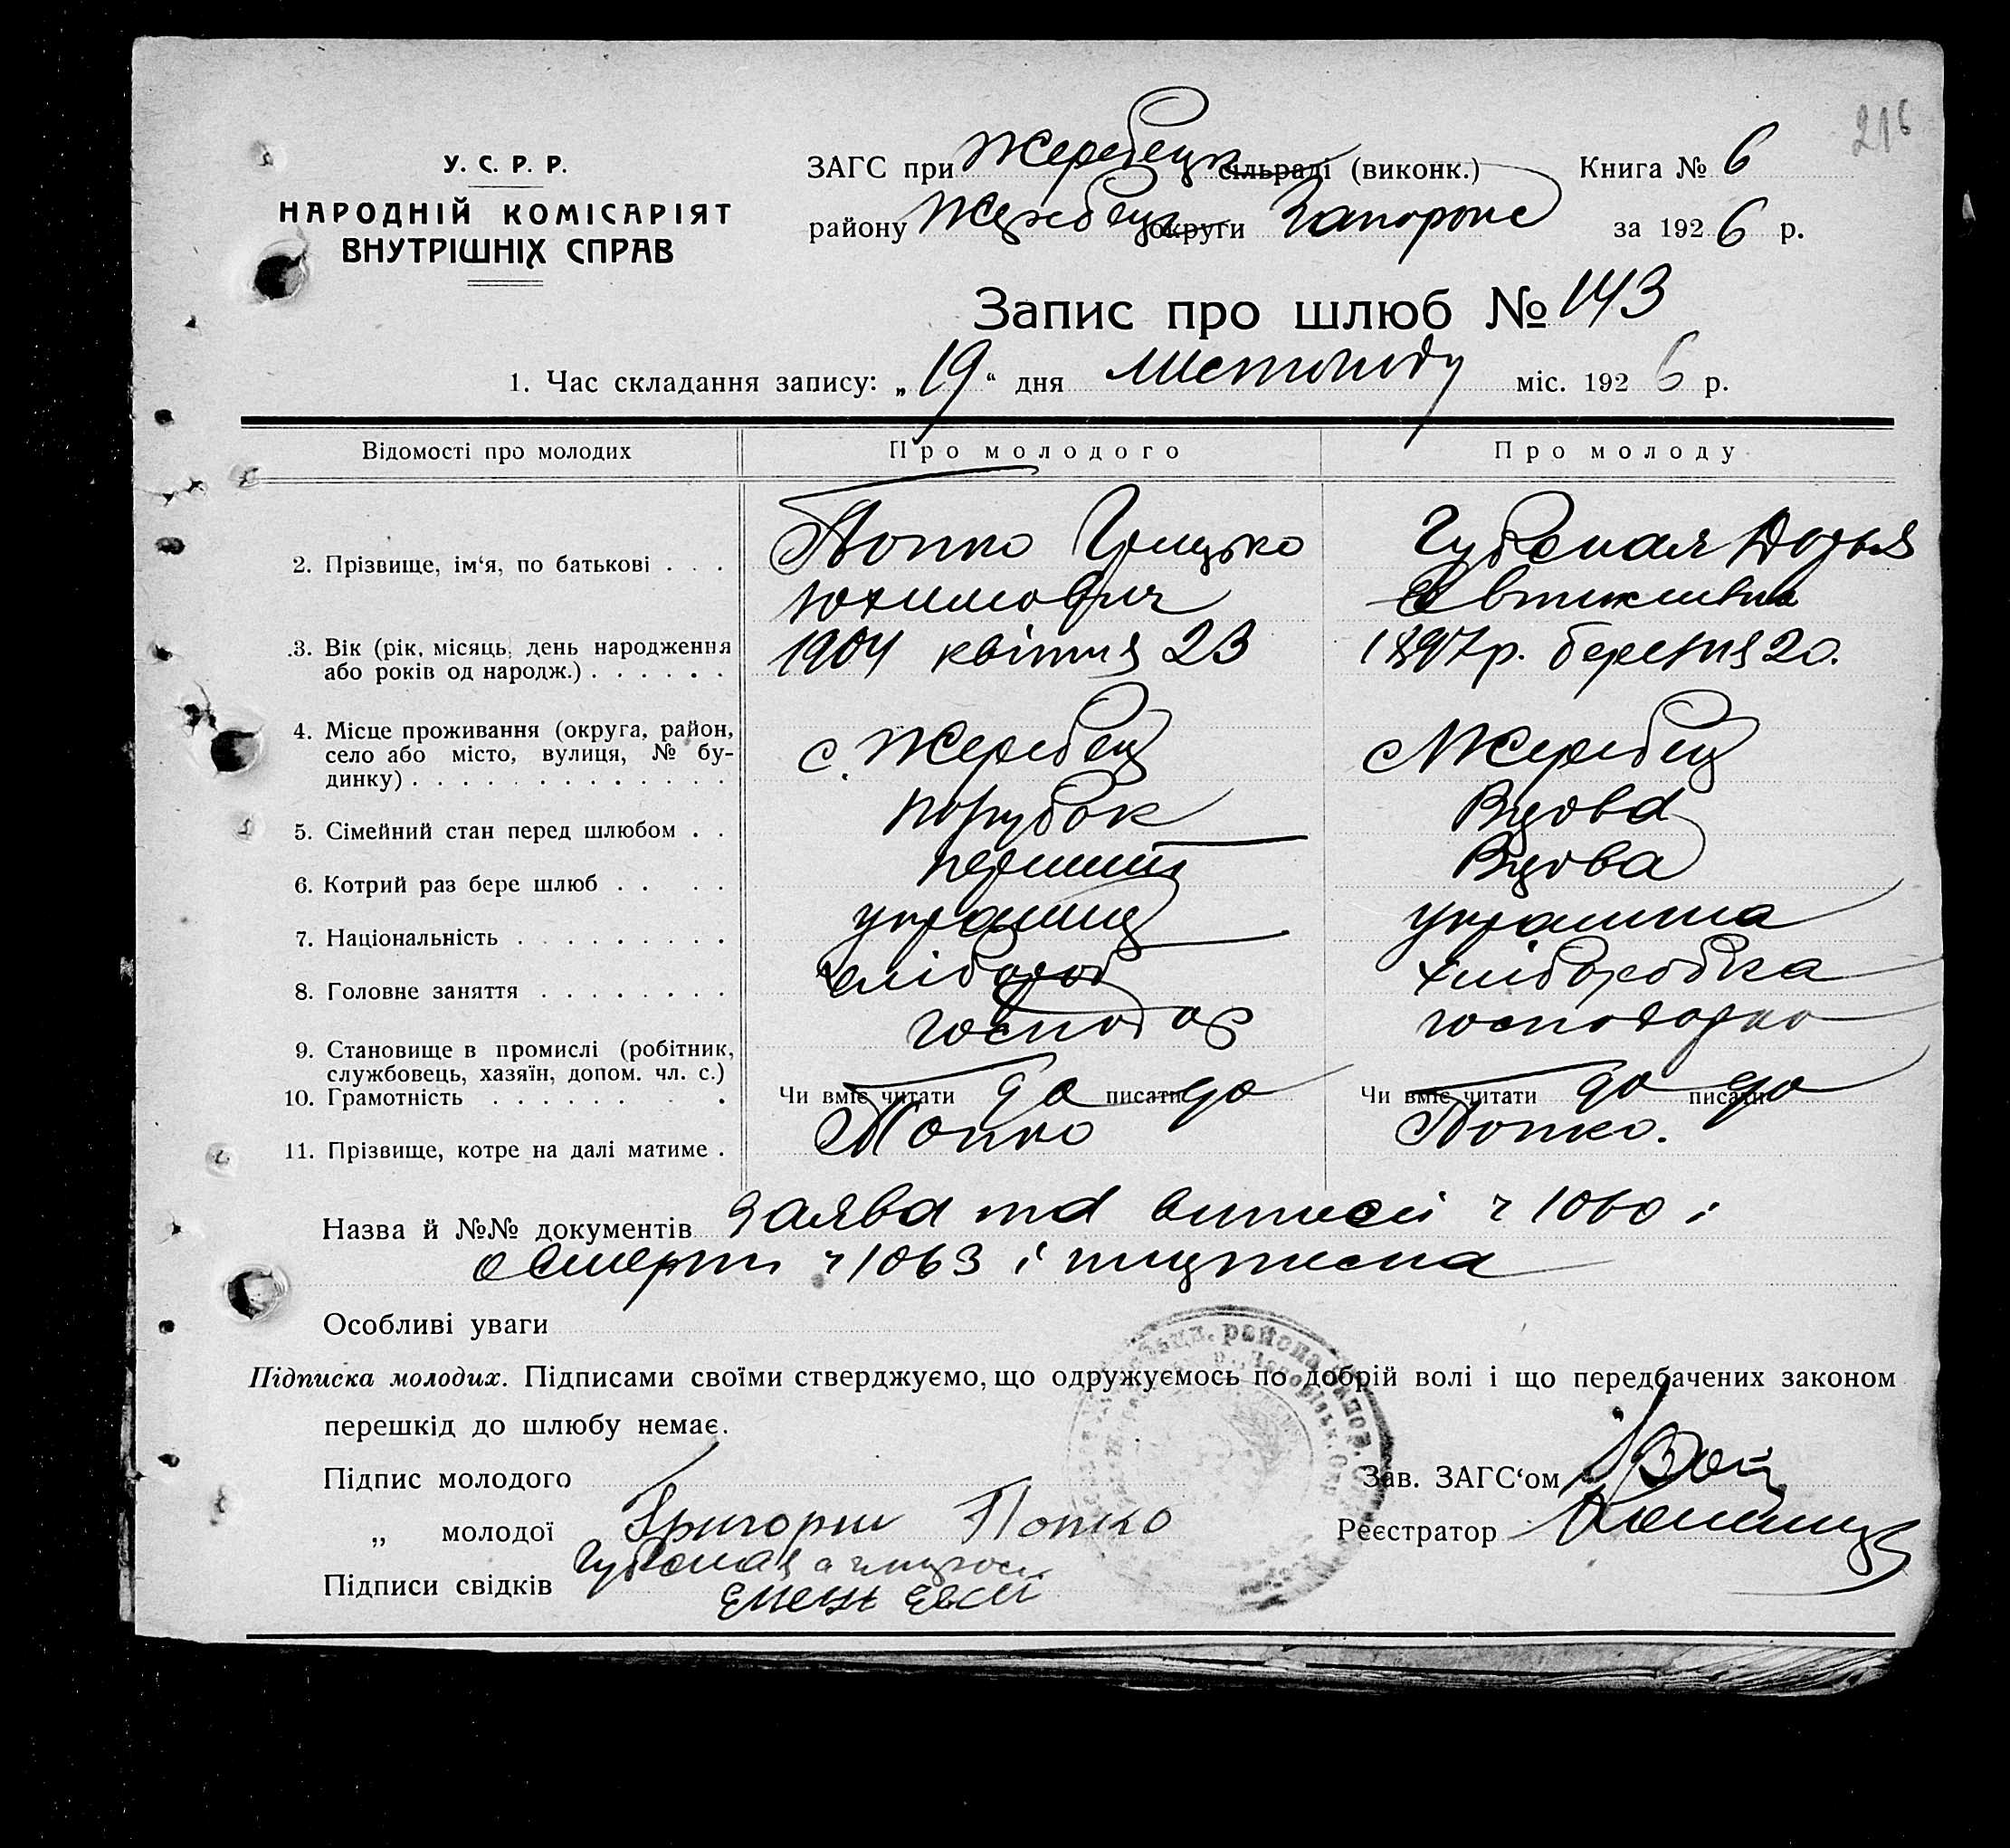 216
У. С. Р. Р.
НАРОДНІЙ КОМІСАРІЯТ
ВНУТРІШНІХ СПРАВ
ЗАГС при Жеребецк сільраді (виконк.) Книга № 6
району Жеребецк округи Запорожс за 1926 р.
Запис про шлюб № 143
1. Час складання запису: „19“ дня листопаду міс. 1926 р.
Відомості про молодих Про молодого Про молоду
2. Прізвище, ім‘я, по батькові . . . Попко Грицько Губская Дарья
Юхимович
3. Вік (рік, місяць, день народження 1904 квітня 23 1897р. березня 20.
або років од народж.) . . . . . .
4. Місце проживання (округа, район, с. Жеребец с Жеребец
село або місто, вулиця, № бу-
динку) . . . . . . . . . . . . .
5. Сімейний стан перед шлюбом . . парубок Вдова
6. Котрий раз бере шлюб . . . . перший Вдова
7. Національність . . . . . . . . . українец українка
8. Головне заняття . . . . . . . . хлібороб хліборобка
9. Становище в промислі (робітник, господар господарка
службовець, хазяїн, допом. чл. с.)
10. Грамотність . . . . . . . . Чи вміє читати да писати да Чи вміє читати да писати да
11. Прізвище, котре на далі матиме . Попко Попко.
Назва й №№ документів заява та виписи ч 1060 і
о смерти ч 1063 і підписка
Особливі уваги
Підписка молодих. Підписами своїми стверджуємо, що одружуємось по добрій волі і що передбачених законом
перешкід до шлюбу немає.
Підпис молодого
Зав. ЗАГС‘ом
„ молодої Григорий Попко
Реєстратор
Губская
Підписи свідків